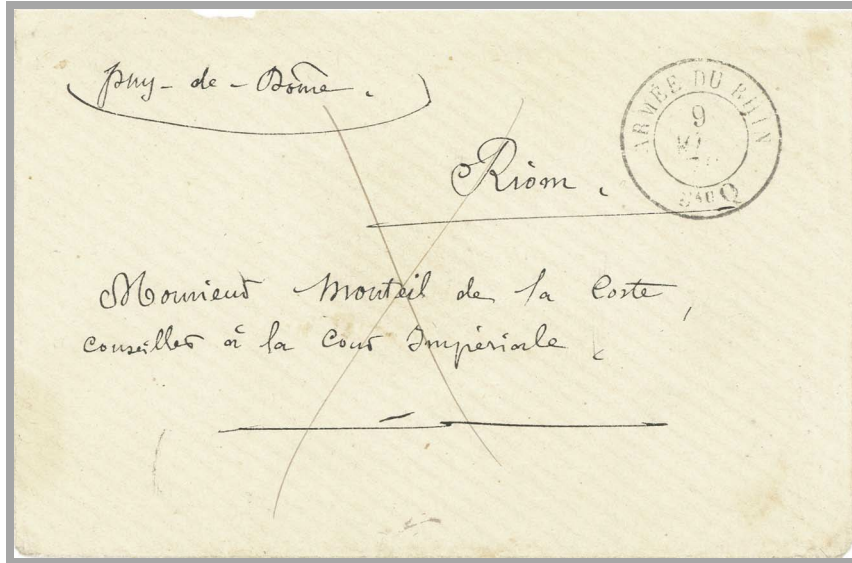 Puy-de-Dôme.
ARMÉE DU RHIN
9
Bau Q
Riom.
Monsieur Monteil de la Coste,
Conseiller à la Cour Impériale